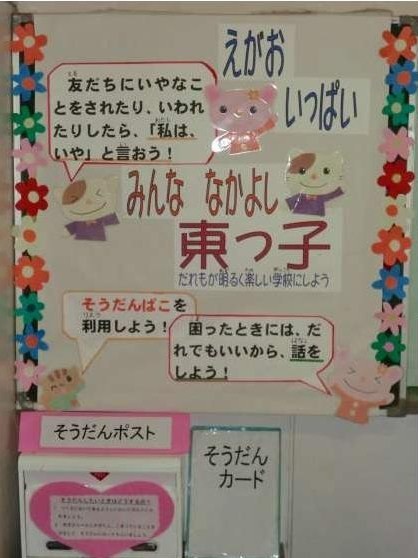 えがお
いっぱい
友だちにいやなこ
とをされたり、いわれ
たりしたら、「私は、
いや」と言おう！
みんな なかよし
東っ子
だれもが明るく楽しい学校にしよう
そうだんばこを
利用しよう！
困ったときには、だ
れでもいいから、話を
しよう！
そうだんポスト
そうだん
カード